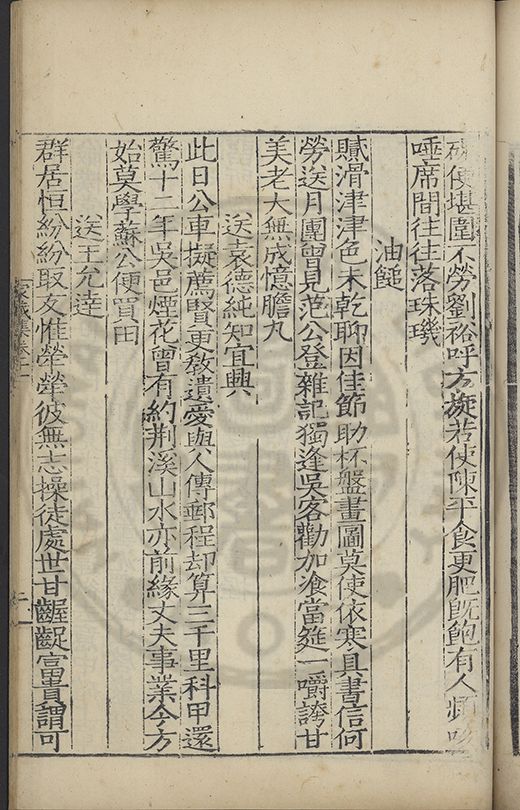 便堪圍不勞劉裕呼方旋若使陳平食更肥既飽有人
唾席間往往落珠璣
油䭔
膩滑津津色未乾聊因佳節助杯盤畫圖莫使依寒具書信何
勞送月團曾見范公登雜記獨逢吳客勸加飡當筵一嚼誇甘
美老大無成憶膽丸
送袁德純知宜興
此日公車擬薦賢更教遺愛與人傳郵程却算三千里科甲還
驚十二年吳邑煙花曾有約荆溪山水亦前緣丈夫事業今方
始莫學蘇公便買田
送王允達
群居恒紛紛取友惟煢煢彼無志操徒處世甘齷齪富貴謂可